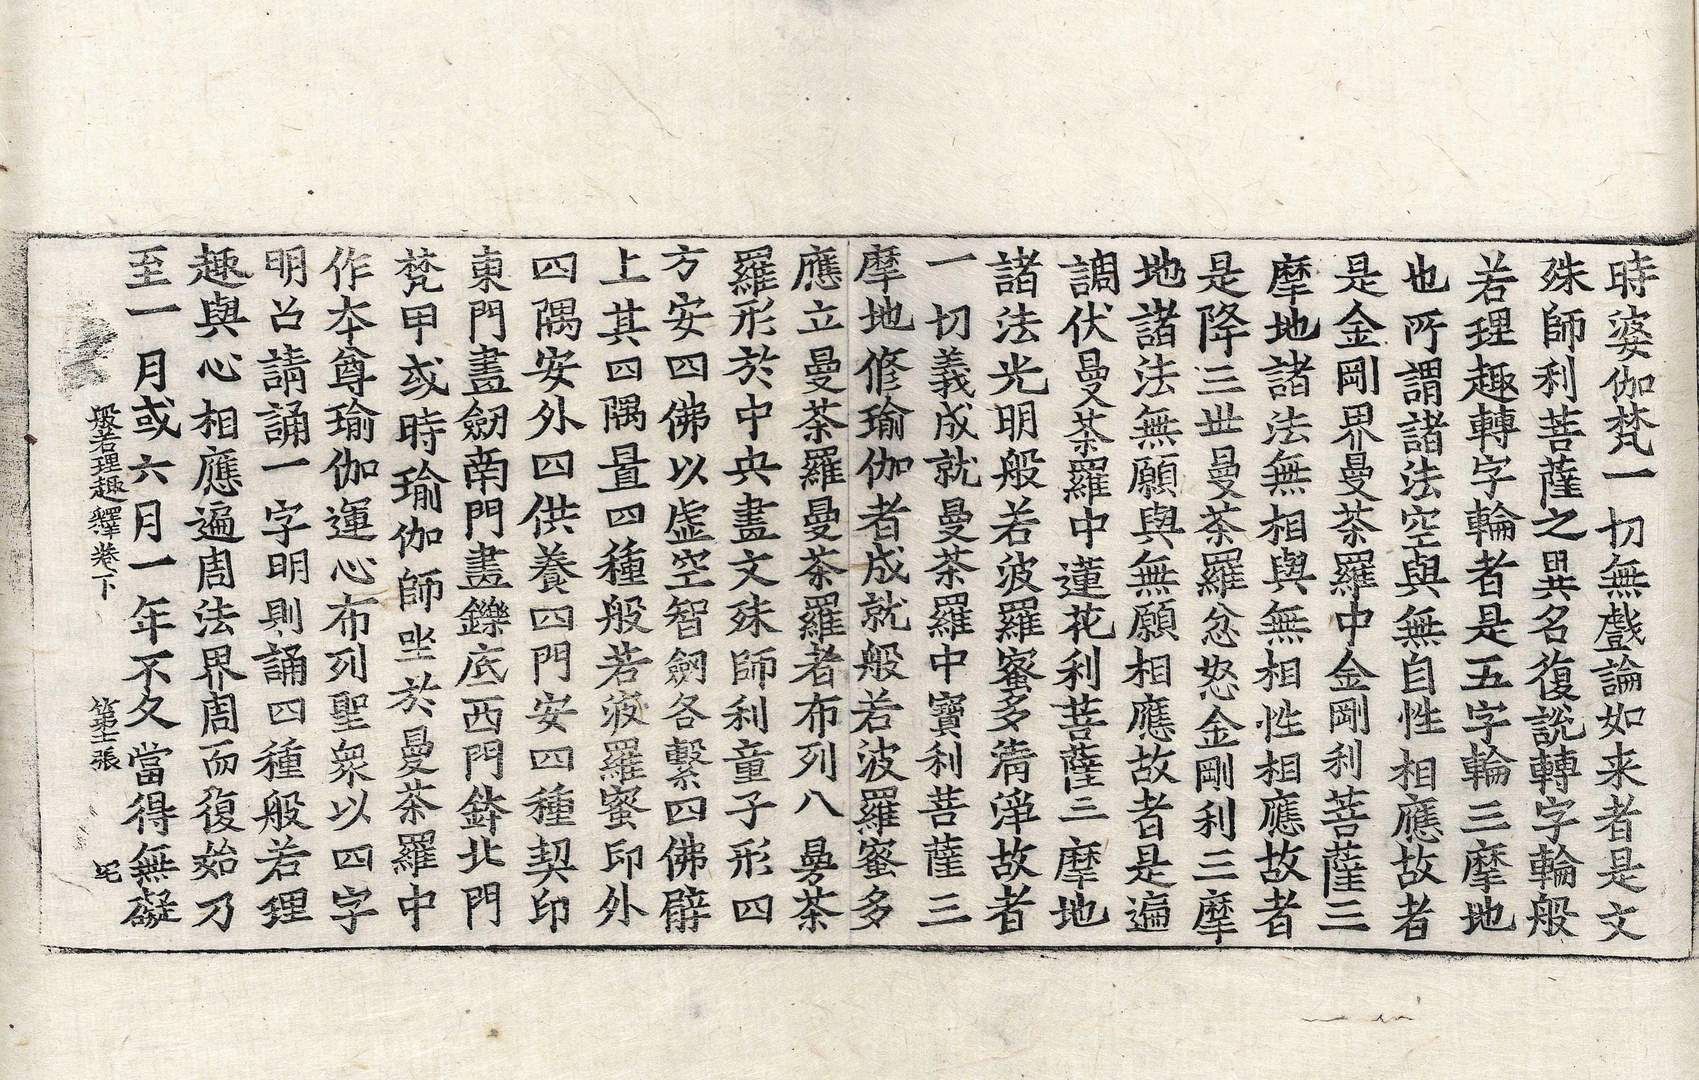 時婆伽梵一切無戲論如来者是文
殊師利菩薩之異名復說轉字輪般
若理趣轉字輪者是五字輪三摩地
也所謂諸法空與無自性相應故者
是金剛界曼茶羅中金剛利菩薩三
摩地諸法無相與無相性相應故者
是降三世曼茶羅忿怒金剛利三摩
地諸法無願與無願相應故者是遍
調伏曼茶羅中蓮花利菩薩三摩地
諸法光明般若波羅蜜多清淨故者
一切義成就曼茶羅中寶利菩薩三
摩地修瑜伽者成就般若波羅蜜多
應立曼茶羅曼茶羅者布列八曼茶
羅形於中央畫文殊師利童子形四
方安四佛以虛空智劒各繫四佛臂
上其四隅置四種般若波羅蜜印外
四隅安外四供養四門安四種契印
東門畫劒南門畫鑠底西門鉢北門
梵甲或時瑜伽師坐於曼茶羅中
作本尊瑜伽運心布列聖衆以四字
明召請誦一字明則誦四種般若理
趣與心相應遍周法界周而復始乃
至一月或六月一年不久當得無礙
般若理趣釋卷下　第十二張